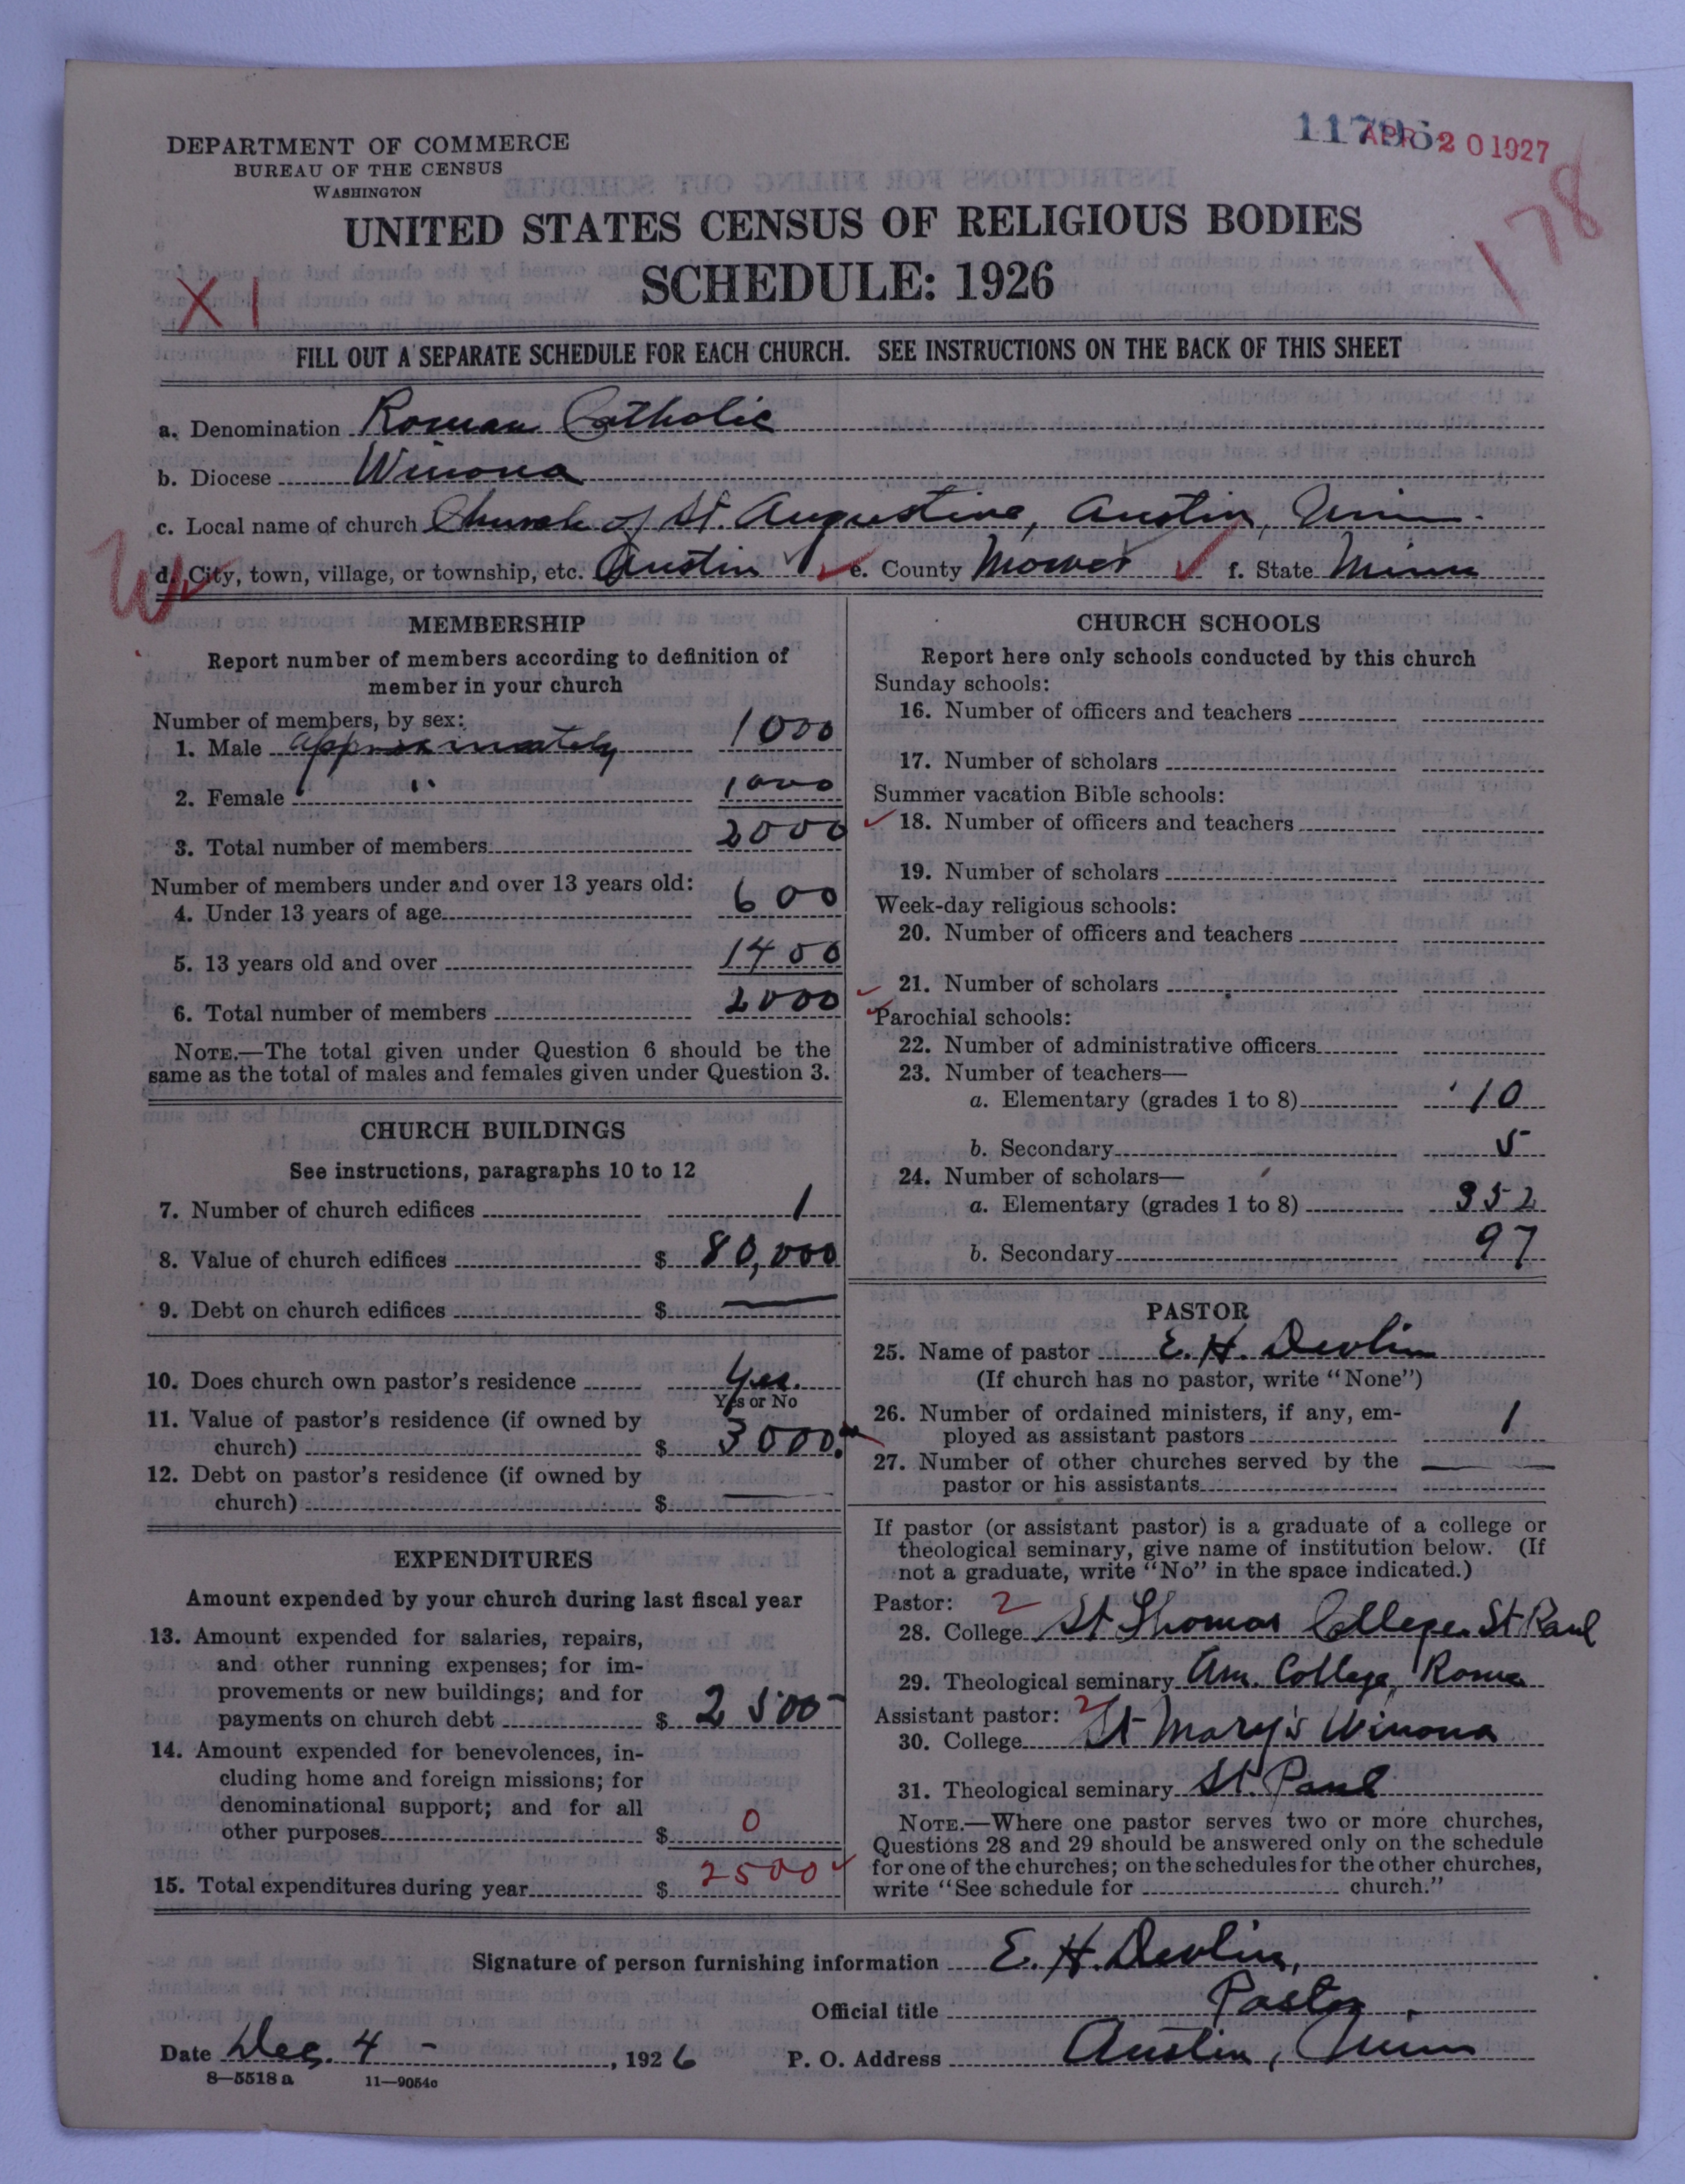 DEPARTMENT OF COMMERCE
BUREAU OF THE CENSUS
WASHINGTON
APR 20 1927
178
UNITED STATES CENSUS OF RELIGIOUS BODIES
SCHEDULE: 1926
XI
FILL OUT A SEPARATE SCHEDULE FOR EACH CHURCH. SEE INSTRUCTIONS ON THE BACK OF THIS SHEET
a. Denomination Roman Catholic
b. Diocese Winona
c. Local name of church Church of St. Augustine, Austin, Minn.
d. City, town, village, or township, etc. Austin e. County Mower f. State Minn
W
MEMBERSHIP
Report number of members according to definition of
member in your church
Number of members, by sex:
1. Male approximately 1000
2. Female " 1000
3. Total number of members 2000
Number of members under and over 13 years old:
4. Under 13 years of age 600
5. 13 years old and over 1400
6. Total number of members 2000
NOTE.—The total given under Question 6 should be the
same as the total of males and females given under Question 3.
CHURCH BUILDINGS
See instructions, paragraphs 10 to 12
7. Number of church edifices 1
8. Value of church edifices $ 80,000
9. Debt on church edifices $ —
10. Does church own pastor's residence Yes.
Yes or No
11. Value of pastor's residence (if owned by
church) $ 3000.
12. Debt on pastor's residence (if owned by
church) $ —
EXPENDITURES
Amount expended by your church during last fiscal year
13. Amount expended for salaries, repairs,
and other running expenses; for im-
provements or new buildings; and for
payments on church debt $ 2500-
14. Amount expended for benevolences, in-
cluding home and foreign missions; for
denominational support; and for all
other purposes $ 0
15. Total expenditures during year $ 2500
CHURCH SCHOOLS
Report here only schools conducted by this church
Sunday schools:
16. Number of officers and teachers
17. Number of scholars
Summer vacation Bible schools:
18. Number of officers and teachers
19. Number of scholars
Week-day religious schools:
20. Number of officers and teachers
21. Number of scholars
Parochial schools:
22. Number of administrative officers
23. Number of teachers—
a. Elementary (grades 1 to 8) 10
b. Secondary 5
24. Number of scholars—
a. Elementary (grades 1 to 8) 352
b. Secondary 97
PASTOR
25. Name of pastor E. H. Devlin
(If church has no pastor, write "None")
26. Number of ordained ministers, if any, em-
ployed as assistant pastors 1
27. Number of other churches served by the
pastor or his assistants —
If pastor (or assistant pastor) is a graduate of a college or
theological seminary, give name of institution below. (If
not a graduate, write "No" in the space indicated.)
Pastor: 2
28. College St Thomas College. St Paul
29. Theological seminary Am. College, Rome
Assistant pastor: 2
30. College St Mary's Winona
31. Theological seminary St. Paul
NOTE.—Where one pastor serves two or more churches,
Questions 28 and 29 should be answered only on the schedule
for one of the churches; on the schedules for the other churches,
write "See schedule for church."
Signature of person furnishing information E. H. Devlin,
Official title Pastor.
Date Dec. 4 -, 1926 P. O. Address Austin, Minn
8—5518 a 11—9054c